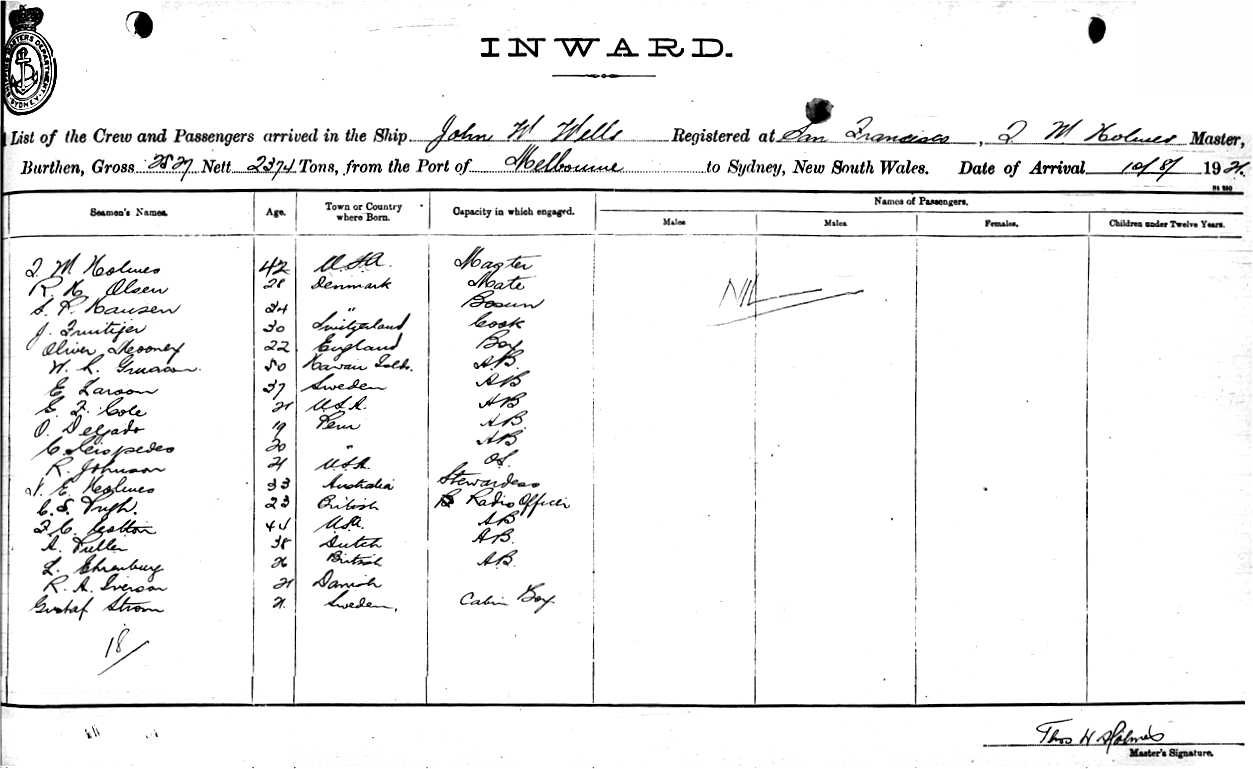 INWARD.
List of the Crew and Passengers arrived in the Ship John W Wells Registered at San Francisco, T M Holmes Master,
Burthen, Gross Nett 2374 Tons, from the Port of Melbourne to Sydney, New South Wales. Date of Arrival 10/8/ 1921.
Names of Passengers.
Seamen's Names. Age. Town or Country where Born. Capacity in which engaged. Males Males Females. Children under Twelve Years.
T M Holmes 42 U.S.A. Master
R H Olsen 28 Denmark Mate
S. P. Hansen 34 " Bosun
J. Frutiger 30 Switzerland Cook
Oliver Mooney 22 England Boy
W. L. 50 Hawaii Islds. AB.
E Larson 37 Sweden AB
E. F. Cole 21 U.S.A. AB
O. Delgado 19 Peru AB
C 20 " AB
R. Johnson 21 U.S.A. OS.
E. Holmes 33 Australia Stewardess
C. S. Pugh. 23 British Radio Officer
F C Cotton 44 U.S.A. AB
A. Fuller 38 Dutch AB.
L. Ehrenburg 26 British AB.
R. A. Iverson 21 Danish
Gustaf Strom 21 Sweden. Cabin Boy.
NIL
18/
Thos H Holmes
Master's Signature.